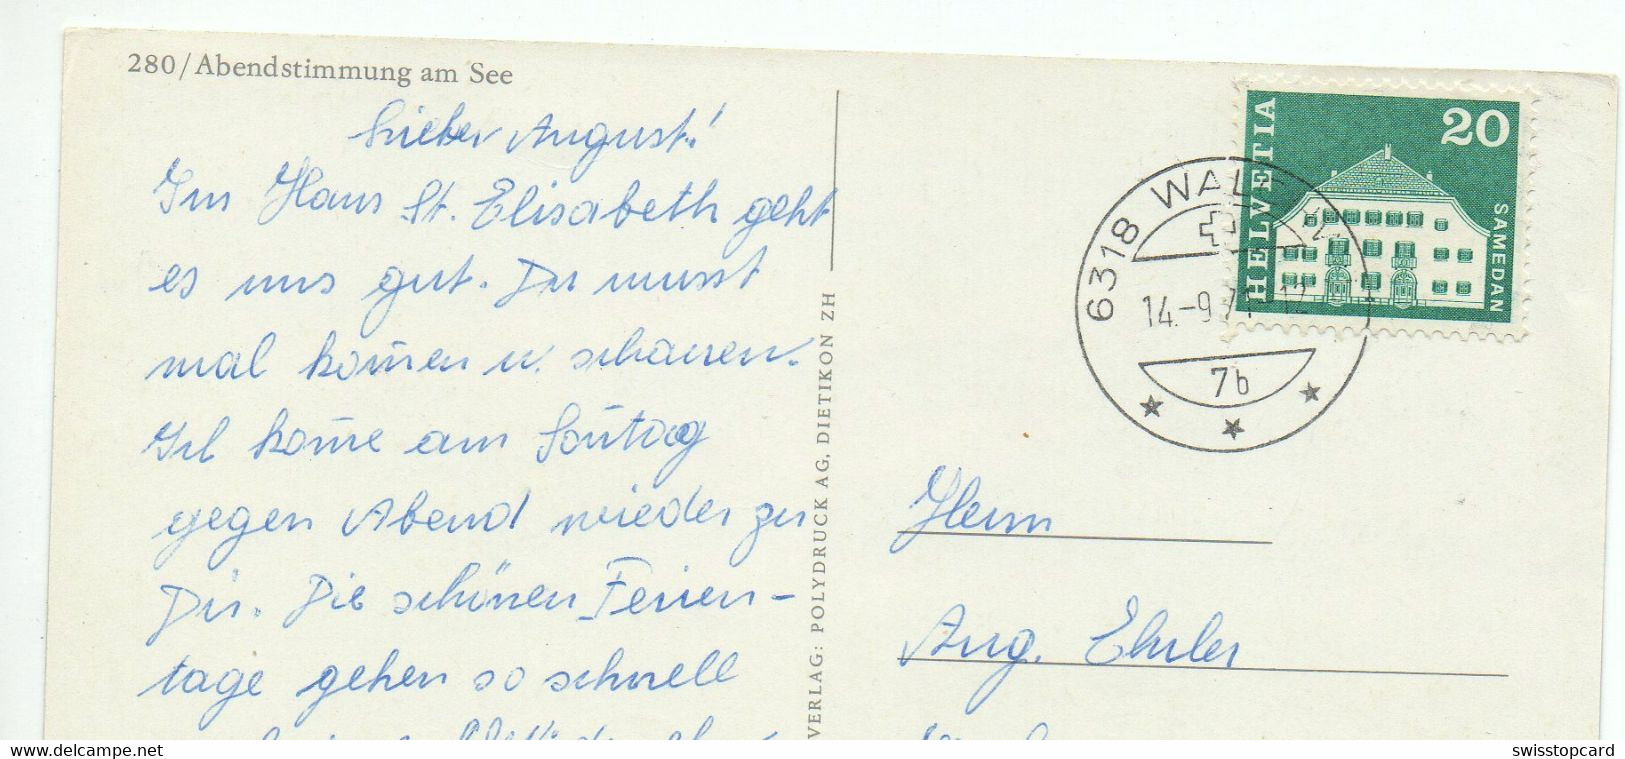 280/Abendstimmung am See
Lieber August!
Im Haus St. Elisabeth geht
es uns gut. Du musst
mal kom̄en u. schauen.
Ich kom̄e am Son̄tag
gegen Abend wieder zu
Dir. Die schönen Ferien-
tage gehen so schnell
VERLAG: POLYDRUCK AG, DIETIKON ZH
HELVETIA
20
SAMEDAN
6318 WAL
14.-9.71-12
7b
Herrn
Aug. Ehrler
www.delcampe.net
swisstopcard